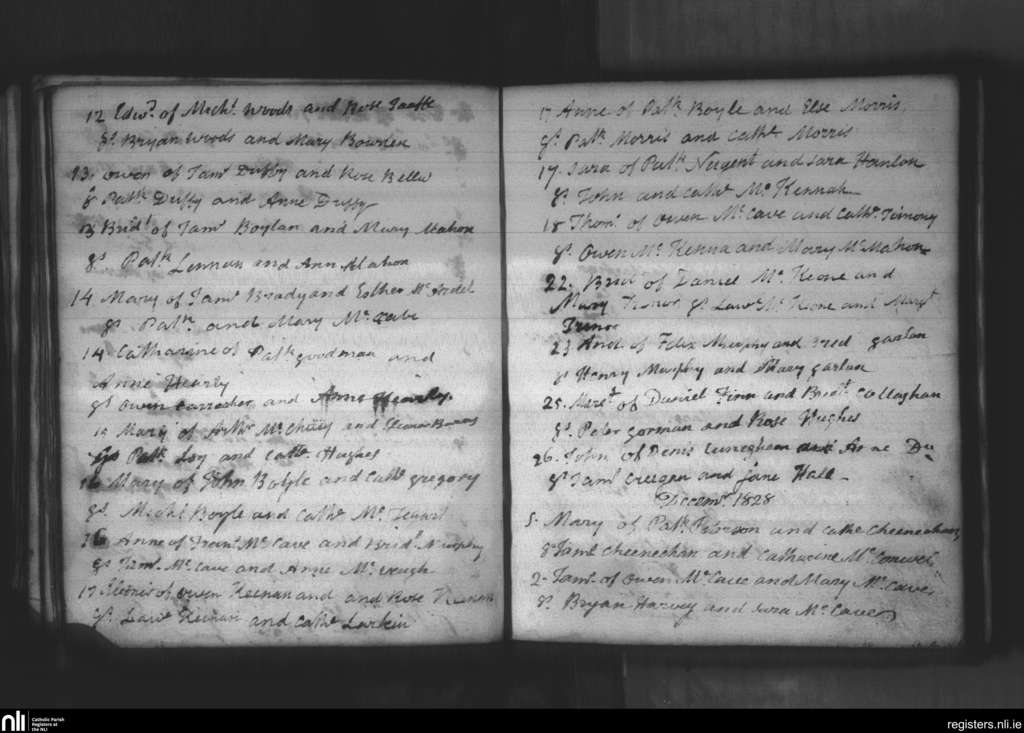 12 Edwd. of Michl. Woods and Rose Taaffe
gs. Bryan Woods and Mary Bowden
13. Owen of Jams Duffy and Rose Bellew
gs Patk. Duffy and Anne Duffy
13 Bridt. of Jams Boylan and Mary Mahon
gs. Patk Lennan and Ann Mahon
14. Mary of Jams Brady and Esther Mc Ardel
gs. Patk. and Mary Mc. Cabe
14. Catharine of Patk goodman and
Anne Hearty
gs Owen and Anne Hearty.
15 Mary of Arthr Mc and
gs Patk. Loy and Cathe Hughes
16 Mary of John Boyle and Cathe gregory
gs. Michl Boyle and Cathe Mc.
16 Anne of Frans. Mc Cave and Bridt. Murphy
gs Jams. Mc. Cave and Anne Mc. Veagh
17 of Owen Keenan and and Rose Keenan
gs. Lawe Keenan and Cathe Larkin
17 Anne of Patk Boyle and Else Morris
gs. Patk Morris and Cathe. Morris
17. Sara of Patk Nugent and Sara Hanlon
gs. John and Cathe Mc Kennah
18 Thoms. of Owen Mc. Cave and Cathe.
gs. Owen Mc. Kenna and Mary Mc Mahon
22. Bridt of Daniel Mc. Keone and
Mary Trenor gs Lawe. Mc. Keone and Margt
Trenor
23 of Felix Murphy and Bred gartan
gs Henry Murphy and Mary gartan
25. Margt of Daniel Finn and Bredt Callaghan
gs. Peter gorman and Rose Hughes
26. John of Denis and Anne
gs Jams Creegan and Jane Hall
Decemr. 1828
5. Mary of Patk and Cathe
gs Jams Cheenechan and Catharine Mc.
2. Jams. of Owen Mc. Cave and Mary Mc. Cave
gs. Bryan Harvey and Sara Mc. Cave
nli
Catholic Parish
Registers at
the NLI
registers.nli.ie